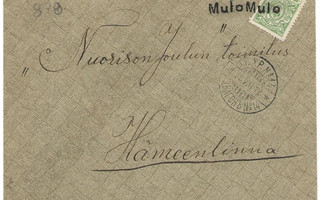 MuloMulo
"Nuorison Joulun" toimitus
Hämeenlinna